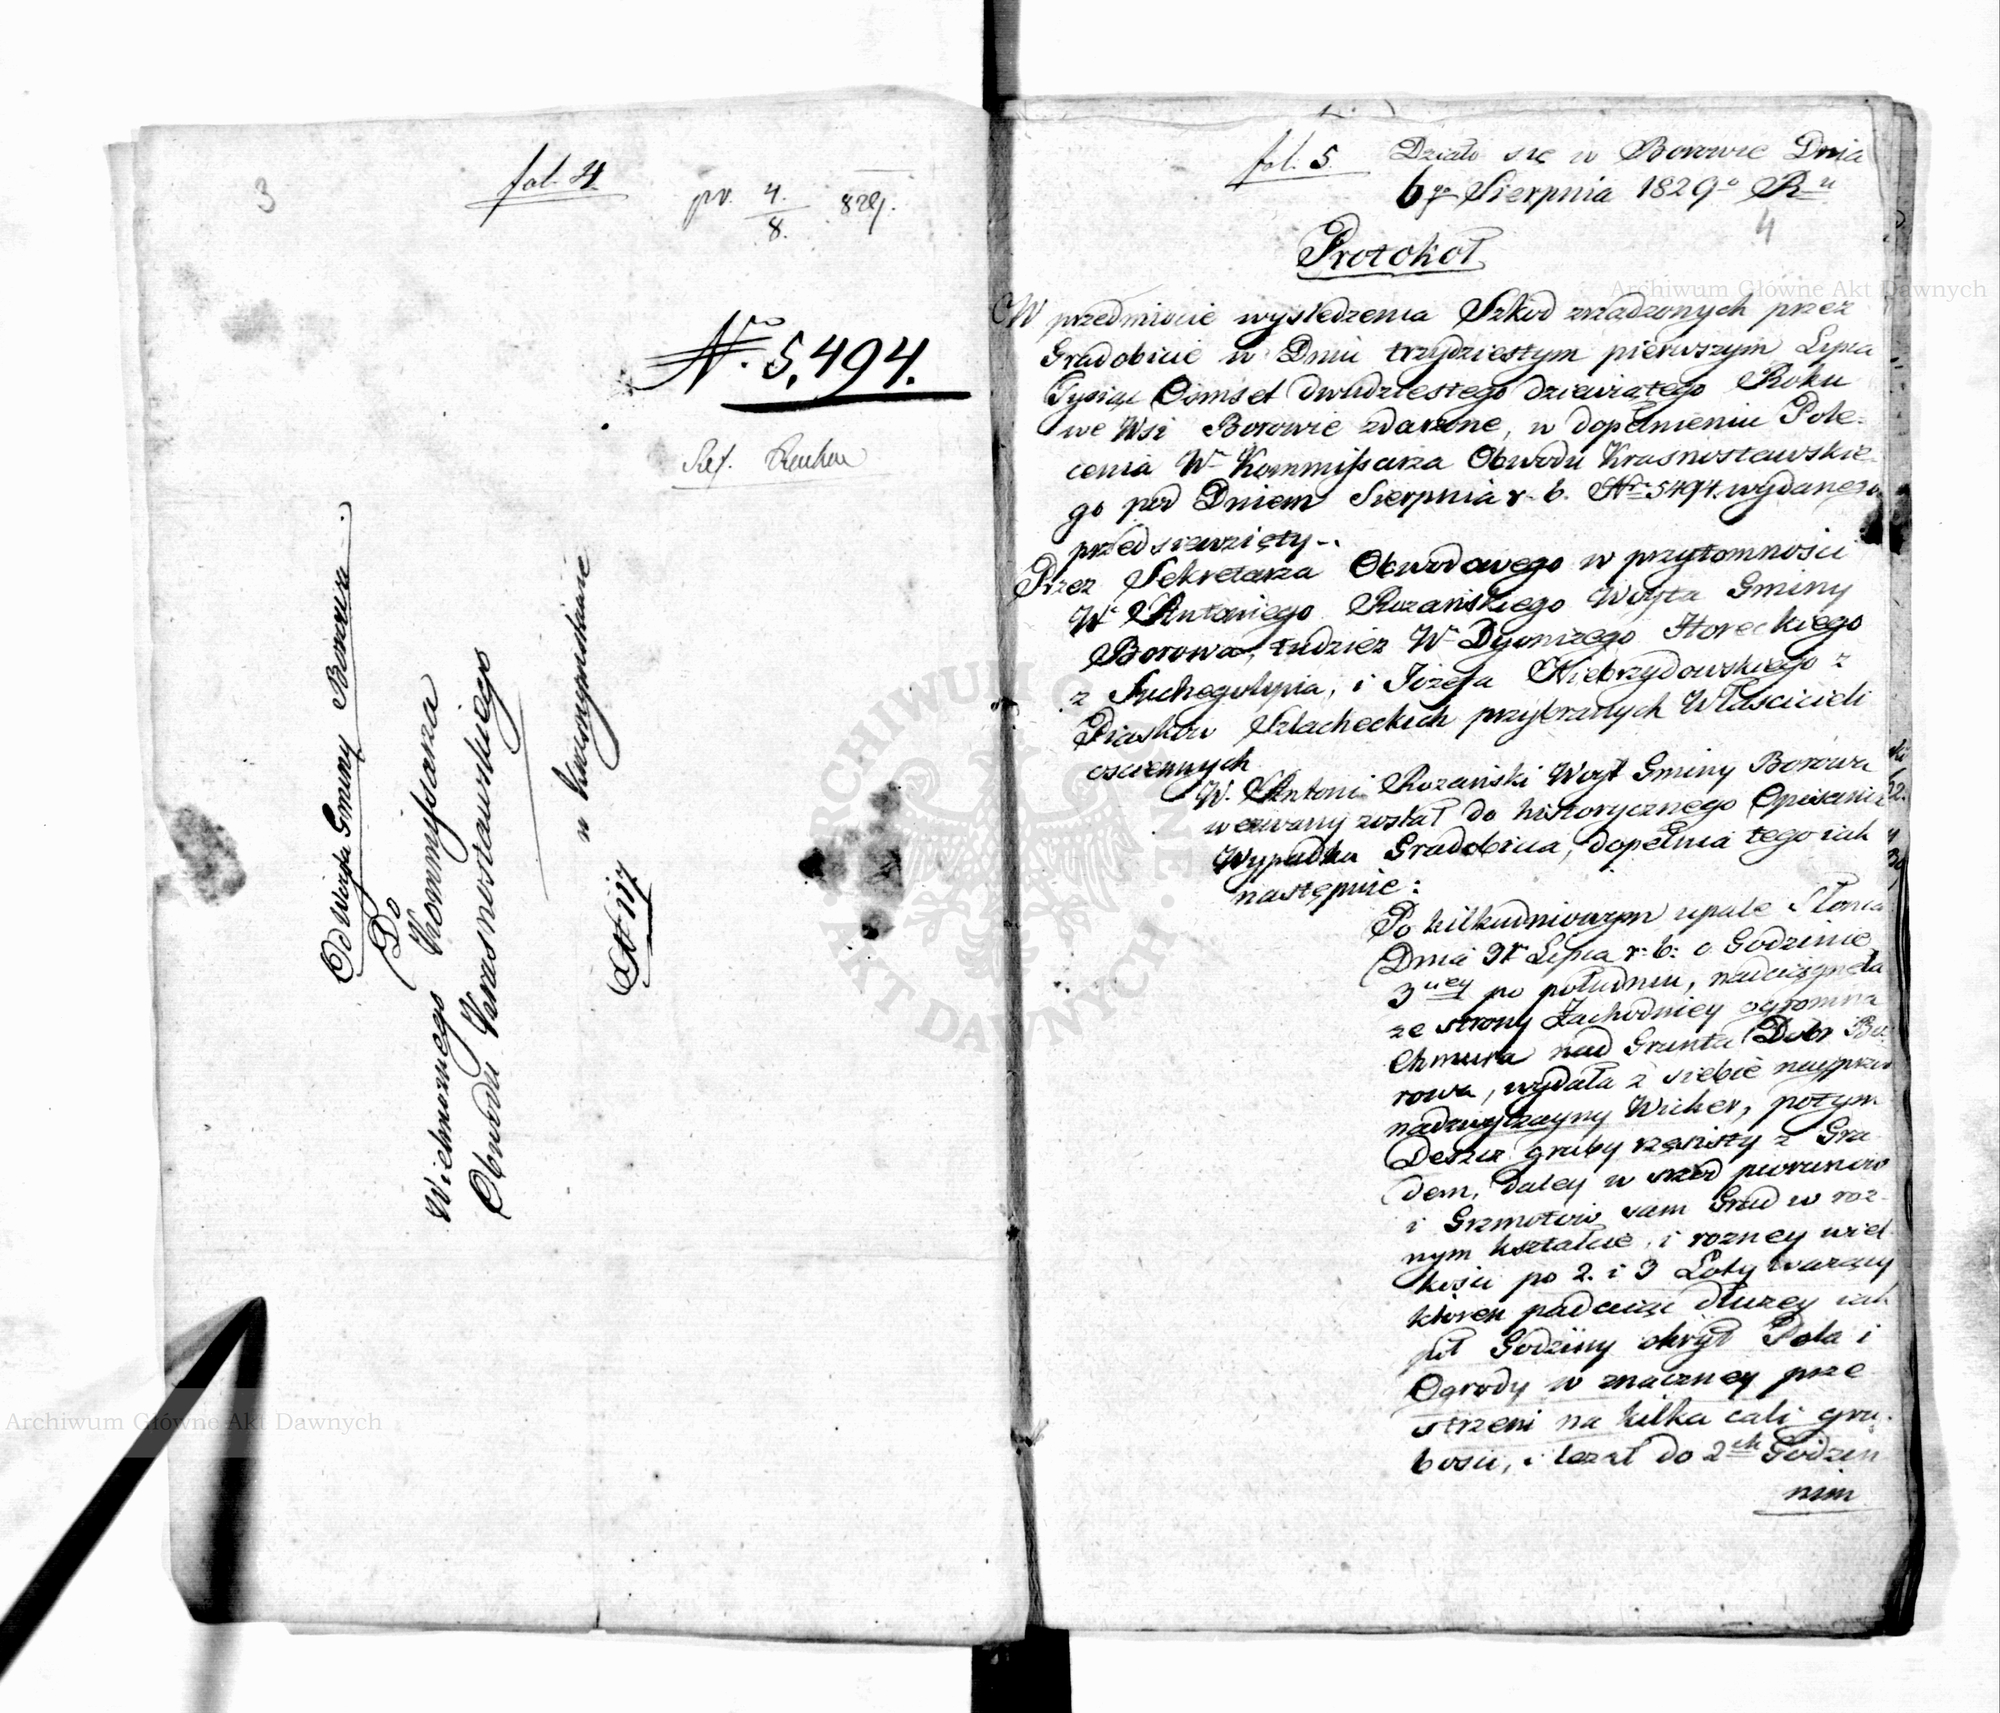 3
fol. 4.
pr. 4/8. 829.
No. 5,494.
Ref.
Od Woyta Gminy Borowa.
Do
Wielmoznego Kommissarza
Obwodu Krasnostawskiego
w Krasnymstawie
No 117
fol. 5
Działo się w Borowie Dnia
6go Sierpnia 1829o Ru
4
Protokoł
W przedmiocie wysledzenia Szkod zrządzonych przez
Gradobicie w Dniu trzydziestym pierwszym Lipca
Tysiąc Osmset dwudziestego dziewiątego Roku
we Wsi Borowie zdarzone, w dopełnieniu Pole-
cenia Wo Kommissarza Obwodu Krasnostawskie-
go pod Dniem Sierpnia r. b. Nro 5494. wydanego
przedsiewzięty.
Przez Sekretarza Obwodowego w przytomnosci
Wo Antoniego Rozańskiego Woyta Gminy
Borowa, tudziez Wo Dyonizego Horeckiego
z Suchegolipia, i Jozefa Niebrzydowskiego z
Piaskow Szlacheckich przybranych Włascicieli
osciennych
W. Antoni Rozański Woyt Gminy Borowa
wezwany został do historycznego Opisania
Wypadku Gradobicia, dopełnia tego iak
następuie:
Po kilkudniowym upale Słonca
Dnia 31 Lipca r: b: o Godzinie
3ciey po południu, nadciągneła
ze strony Zachodniey ogromna
Chmura nad Grunta Dobr Bo-
rowa, wydała z siebie nayprzod
nadzwyczayny Wicher, potym
Deszcz gruby rzęsisty z Gra-
dem, daley w srzod piorunow
i Grzmotow sam Grad w roz-
nym kształcie, i rozney wiel-
kosci po 2. i 3 Łoty warzący,
ktoren padaiąc dłuzey iak
puł Godziny okrył Pola i
Ogrody w znaczney prze
strzeni na kilka cali gru-
bosci, i lezał do 2ch Godzin
nim
Archiwum Główne Akt Dawnych
Archiwum Główne Akt Dawnych
ARCHIWUM GŁÓWNE AKT DAWNYCH